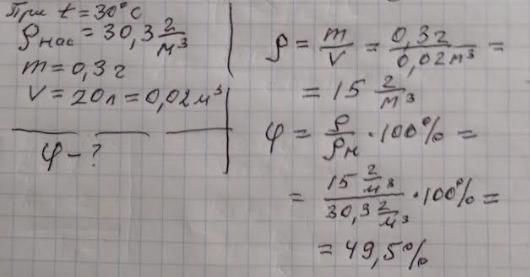 При t = 30°C
ρнас = 30,3 г/м³
m = 0,3 г
V = 20 л = 0,02 м³
φ - ?
ρ = m/V = 0,3 г/0,02 м³ =
= 15 г/м³
φ = ρ/ρн · 100% =
= 15 г/м³ / 30,3 г/м³ · 100% =
= 49,5%